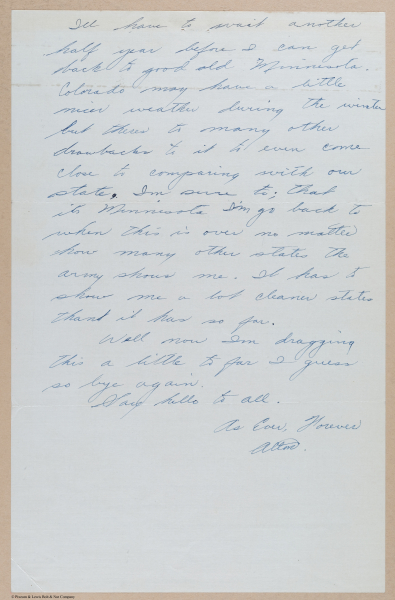 I'll have to wait another
half year before I can get
back to good old Minnesota.
Colorado may have a little
nicer weather during the winter
but theres to many other
drawbacks to it to even come
close to comparing with our
state. I'm sure to, that
its Minnesota I'm go back to
when this is over no matter
how many other states the
army shows me. It has to
show me a lot cleaner states
than it has so far.
Well now I'm dragging
this a little to far I guess
so bye again.
Say hello to all.
As Ever, Forever
Alton.
© Payson & Lewis Bolt & Nut Company